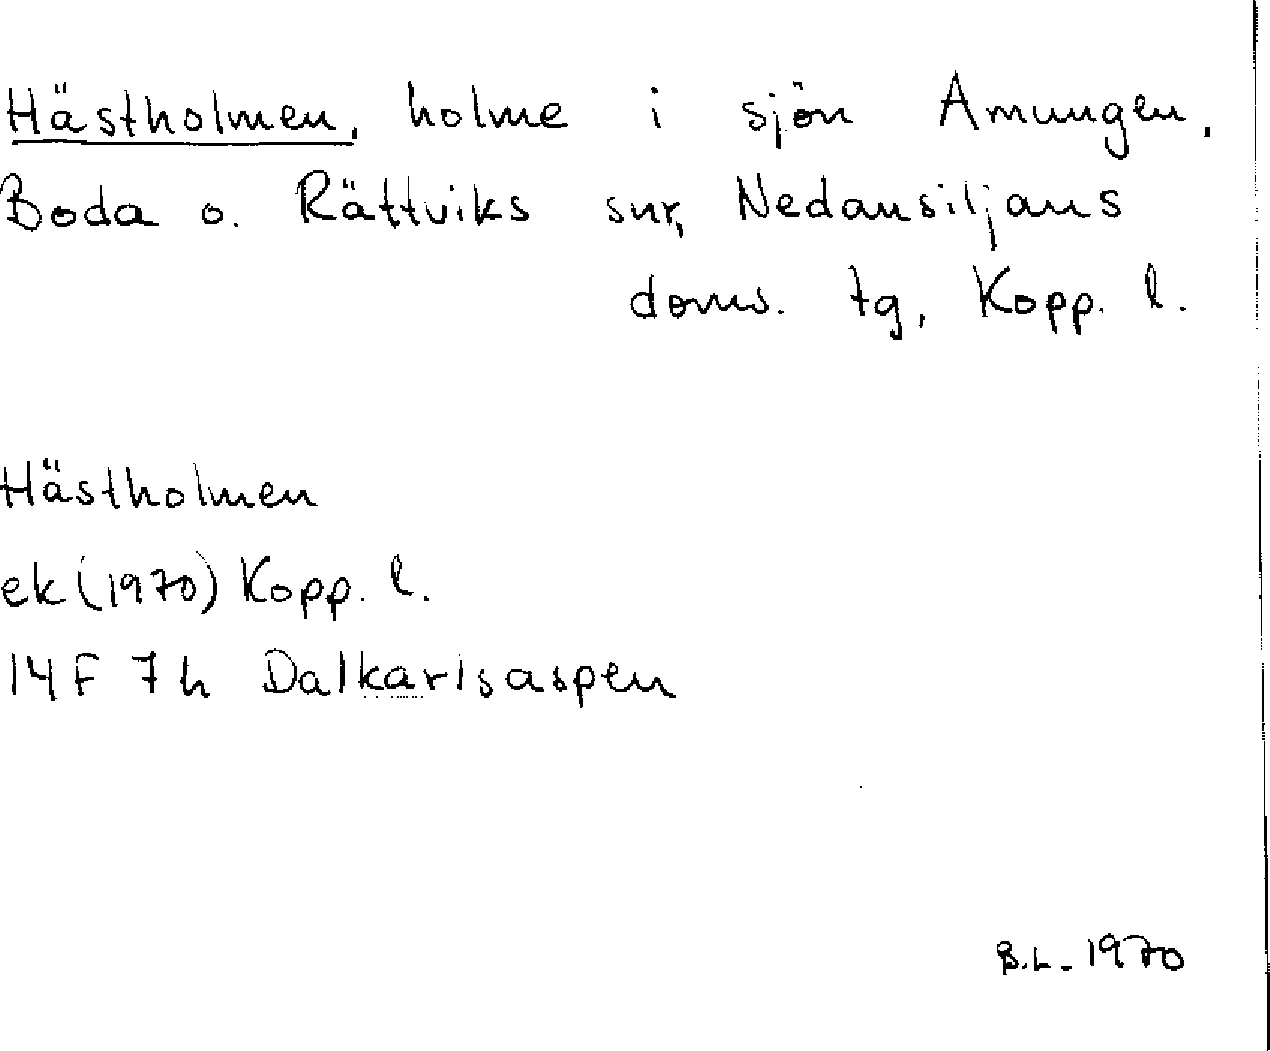 Hästholmen, holme i sjön Amungen,
Boda o. Rättviks snr, Nedansiljans
doms. tg, Kopp. l.
Hästholmen
ek (1970) Kopp. l.
14F 7h Dalkarlsaspen
B.L. 1970